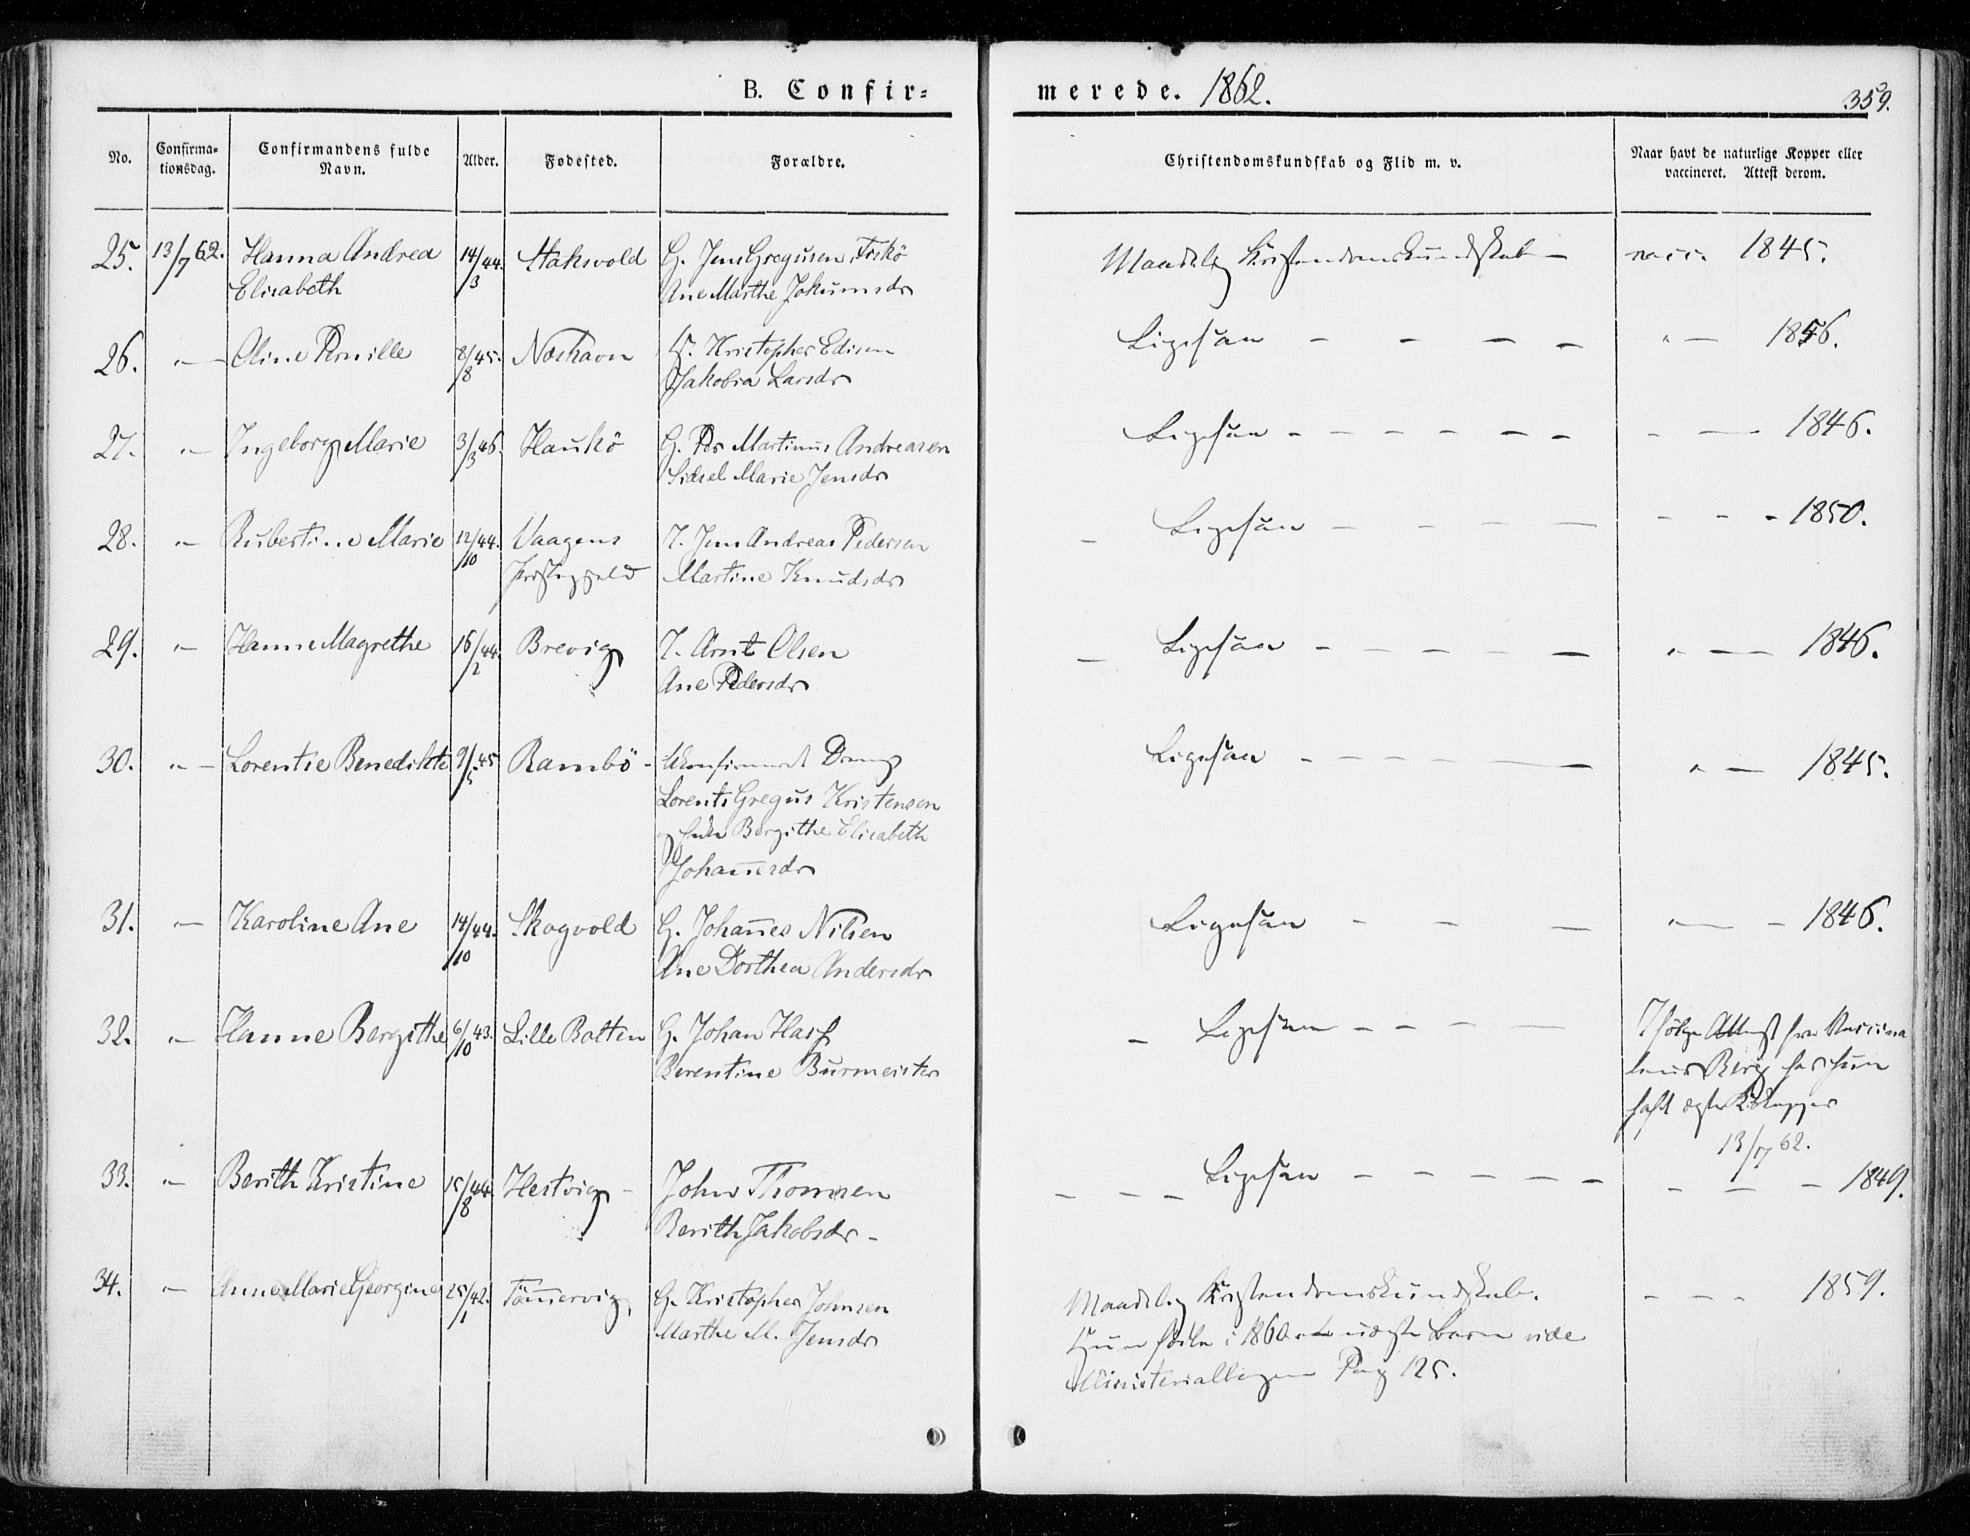 B. Confir= merede. 1862. 359.
No. Confirma= tionsdag. Confirmandens fulde Navn. Alder. Fødested. Forældre. Christendomskundskab og Flid m. v. Naar havt de naturlige Kopper eller vaccineret. Attest derom.
25. 13/7 62. Hanna Andrea 14/3 44. Stakvold G. Jens Gregusen Friskö Maadelig Kristendomskundskab — vacc. 1845.
Elisabeth Ane Marthe Jokumsdr
26. "— Oline Pernille 8/8 45. Næshavn Kristopher Edisen Ligesaa – – – – " — 1856.
Jakobia Larsdr
27. "— Ingeborg Marie 3/3 46. Haukö G. Per Martinus Andreasen Ligesaa - - - - - - - — 1846.
Sidsel Marie Jensdr
28. "— Rubertine Marie 12/10 44. Vaagens I. Jens Andreas Pedersen – Ligesaa – – – — - - - 1850.
Præstegjeld Martine Knudsdr
29. "— Hanne Magrethe 16/2 44. Brevig I. Arnt Olsen — Ligesaa - - - - - — " — 1846.
Ane Pedersdr
30. "— Lorentse Benedikte 9/5 45 Rambö - Ukonfirmeret Dreng Ligesaa - - - - — — " — 1845.
Lorents Gregus Kristensen
og Enke Bergithe Elisabeth
Johannesdr
31. "— Karoline Ane 14/10 44. Skogvold G. Johannes Nilsen Ligesaa – – — "— - 1846.
Ane Dorthea Andersdr
32. "— Hanne Bergithe 6/10 43. Lille Balten G. Johan Hass – Ligesaa - - - — — Ifølge Attest fra Vaccina
Berentine Burmeister Berg har hun
havt ægte Kopper
13/7 62.
33. "— Berith Kristine 15/8 44. Hestvig - John Thomsen – – – Ligesaa – – – – – – – – 1849.
Berith Jakobsdr -
34. "— Anne Marie Georgine 25/1 42. Tömmervig G. Kristopher Johnsen Maadelig Kristendomskundskab. - - - 1859.
Marthe M. Jensdr Hun fødte i 1860 et uægte Barn vide
Ministerialbogen Pag 125.